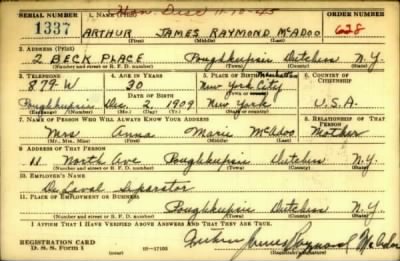 SERIAL NUMBER 1. NAME (Print) Hon Disc 11-10-45 ORDER NUMBER
1337 ARTHUR JAMES RAYMOND McADOO 628
(First) (Middle) (Last)
2. ADDRESS (Print)
2 BECK PLACE Poughkeepsie Dutchess N.Y.
(Number and street or R. F. D. number) (Town) (County) (State)
3. TELEPHONE 4. AGE IN YEARS 5. PLACE OF BIRTH 6. COUNTRY OF CITIZENSHIP
879-W 30 Manhattan New York City
DATE OF BIRTH
Poughkeepsie Dec. 2, 1909 New York U.S.A.
(Exchange) (Number) (Mo.) (Day) (Yr.) (State or country)
7. NAME OF PERSON WHO WILL ALWAYS KNOW YOUR ADDRESS 8. RELATIONSHIP OF THAT PERSON
Mrs Anna Marie McAdoo Mother
(Mr., Mrs., Miss) (First) (Middle) (Last)
9. ADDRESS OF THAT PERSON
11 North Ave Poughkeepsie Dutchess N.Y.
(Number and street or R. F. D. number) (Town) (County) (State)
10. EMPLOYER'S NAME
De Laval Separator
11. PLACE OF EMPLOYMENT OR BUSINESS
Poughkeepsie Dutchess N.Y.
(Number and street or R. F. D. number) (Town) (County) (State)
I AFFIRM THAT I HAVE VERIFIED ABOVE ANSWERS AND THAT THEY ARE TRUE.
REGISTRATION CARD
D. S. S. Form 1 16-17105 Arthur James Raymond McAdoo